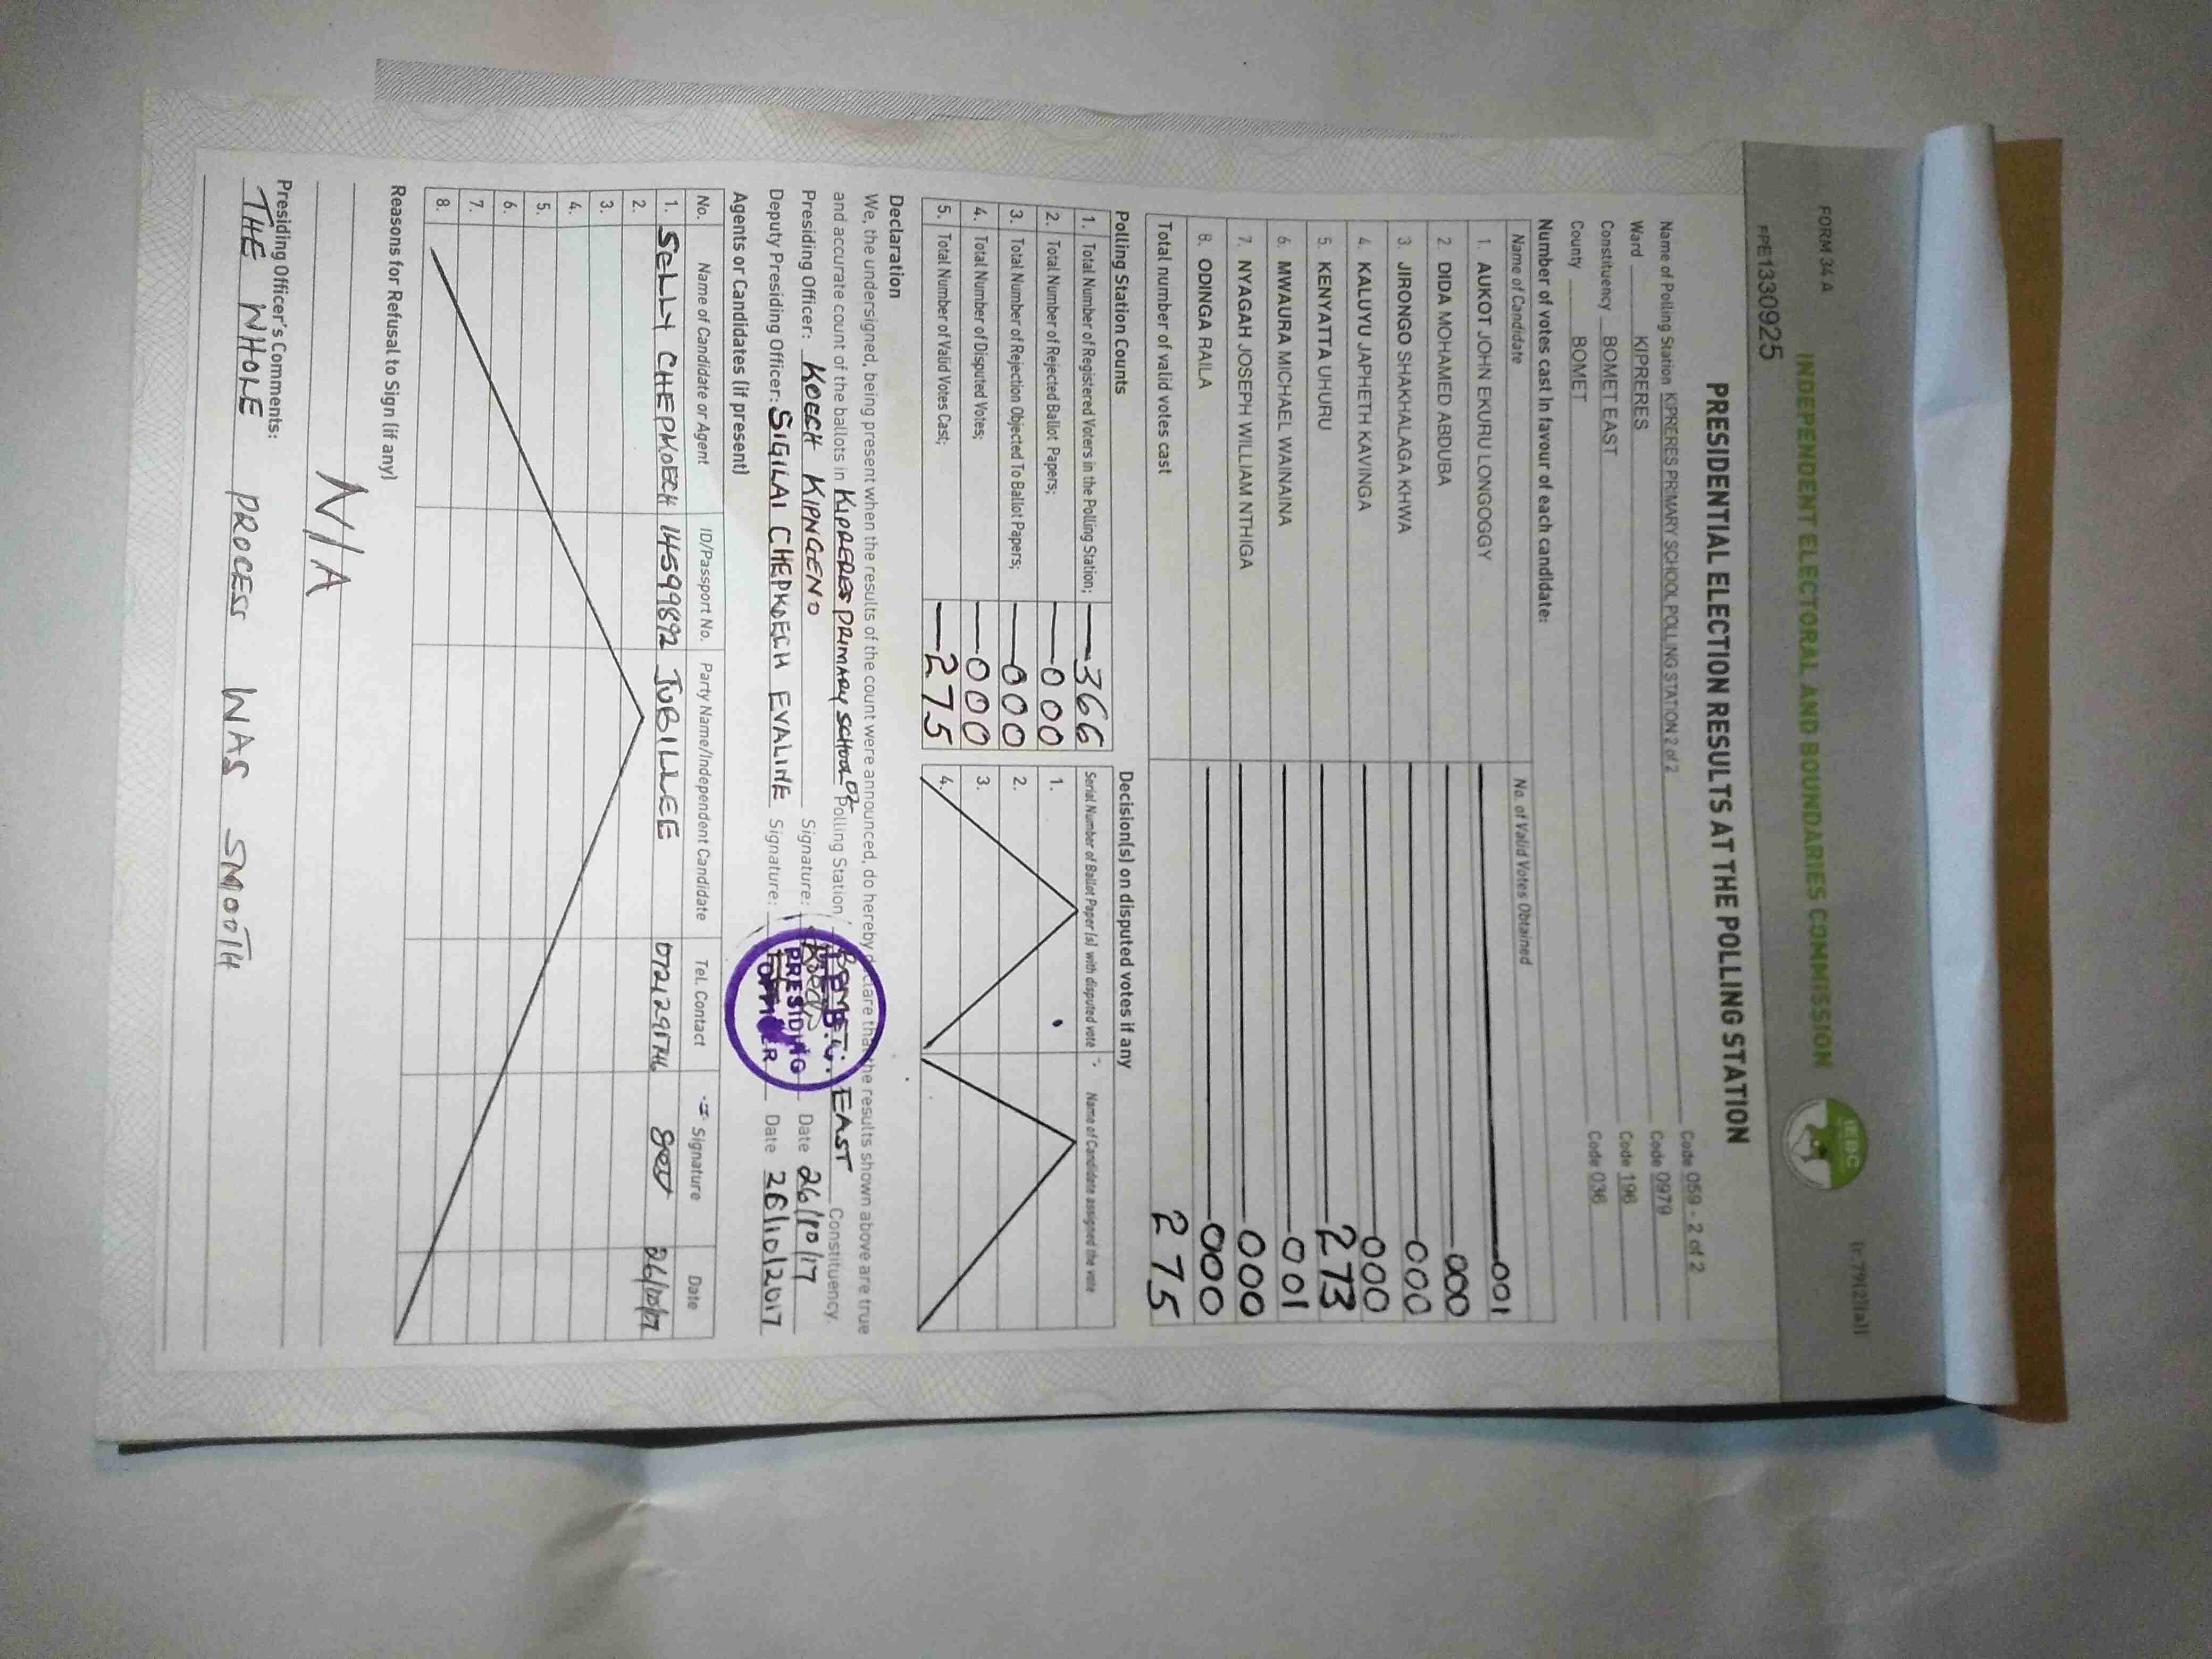 FORM 34 A
(r.79(2)(a))
INDEPENDENT ELECTORAL AND BOUNDARIES COMMISSION
IEBC
FPE1330925
PRESIDENTIAL ELECTION RESULTS AT THE POLLING STATION
Name of Polling Station KIPRERES PRIMARY SCHOOL POLLING STATION 2 of 2 Code 059 - 2 of 2
Ward KIPRERES Code 0979
Constituency BOMET EAST Code 196
County BOMET Code 036
Number of votes cast in favour of each candidate:
Name of Candidate No. of Valid Votes Obtained
1. AUKOT JOHN EKURU LONGOGGY 001
2. DIDA MOHAMED ABDUBA 000
3. JIRONGO SHAKHALAGA KHWA 000
4. KALUYU JAPHETH KAVINGA 000
5. KENYATTA UHURU 273
6. MWAURA MICHAEL WAINAINA 001
7. NYAGAH JOSEPH WILLIAM NTHIGA 000
8. ODINGA RAILA 000
Total number of valid votes cast 275
Polling Station Counts Decision(s) on disputed votes if any
1. Total Number of Registered Voters in the Polling Station; 366 Serial Number of Ballot Paper(s) with disputed vote Name of Candidate assigned the vote
2. Total Number of Rejected Ballot Papers; 000 1.
3. Total Number of Rejection Objected To Ballot Papers; 000 2.
4. Total Number of Disputed Votes; 000 3.
5. Total Number of Valid Votes Cast; 275 4.
Declaration
We, the undersigned, being present when the results of the count were announced, do hereby declare that the results shown above are true
and accurate count of the ballots in KIPRERES PRIMARY SCHOOL 02 Polling Station, BOMET EAST Constituency.
Presiding Officer: KOECH KIPNGENO Signature: Date 26/10/17
Deputy Presiding Officer: SIGILAI CHEPKOECH EVALINE Signature: Date 26/10/2017
PRESIDING OFFICER
Agents or Candidates (if present)
No. Name of Candidate or Agent ID/Passport No. Party Name/Independent Candidate Tel. Contact Signature Date
1. SELLY CHEPKOECH 14599892 JUBILLEE 26/10/17
2.
3.
4.
5.
6.
7.
8.
Reasons for Refusal to Sign (if any)
N/A
Presiding Officer's Comments:
THE WHOLE PROCESS WAS SMOOTH